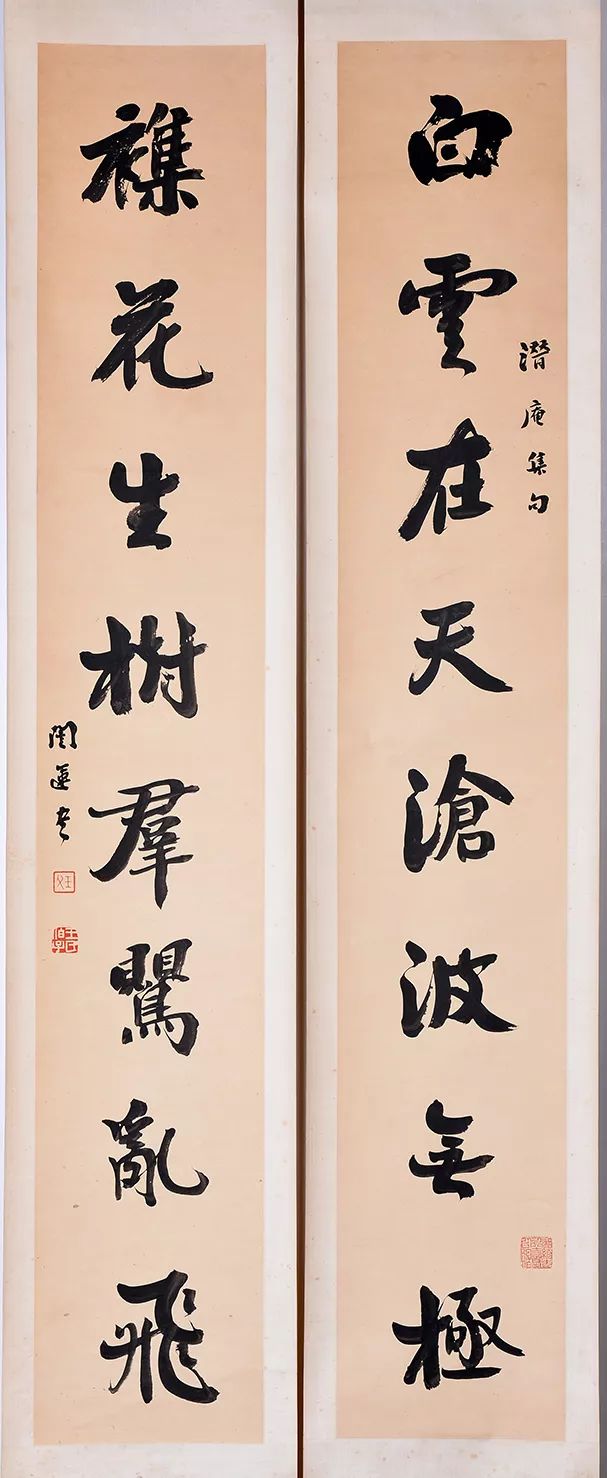 白雲在天滄波無極
潛庵集句
襍花生樹羣鸎亂飛
闓運書